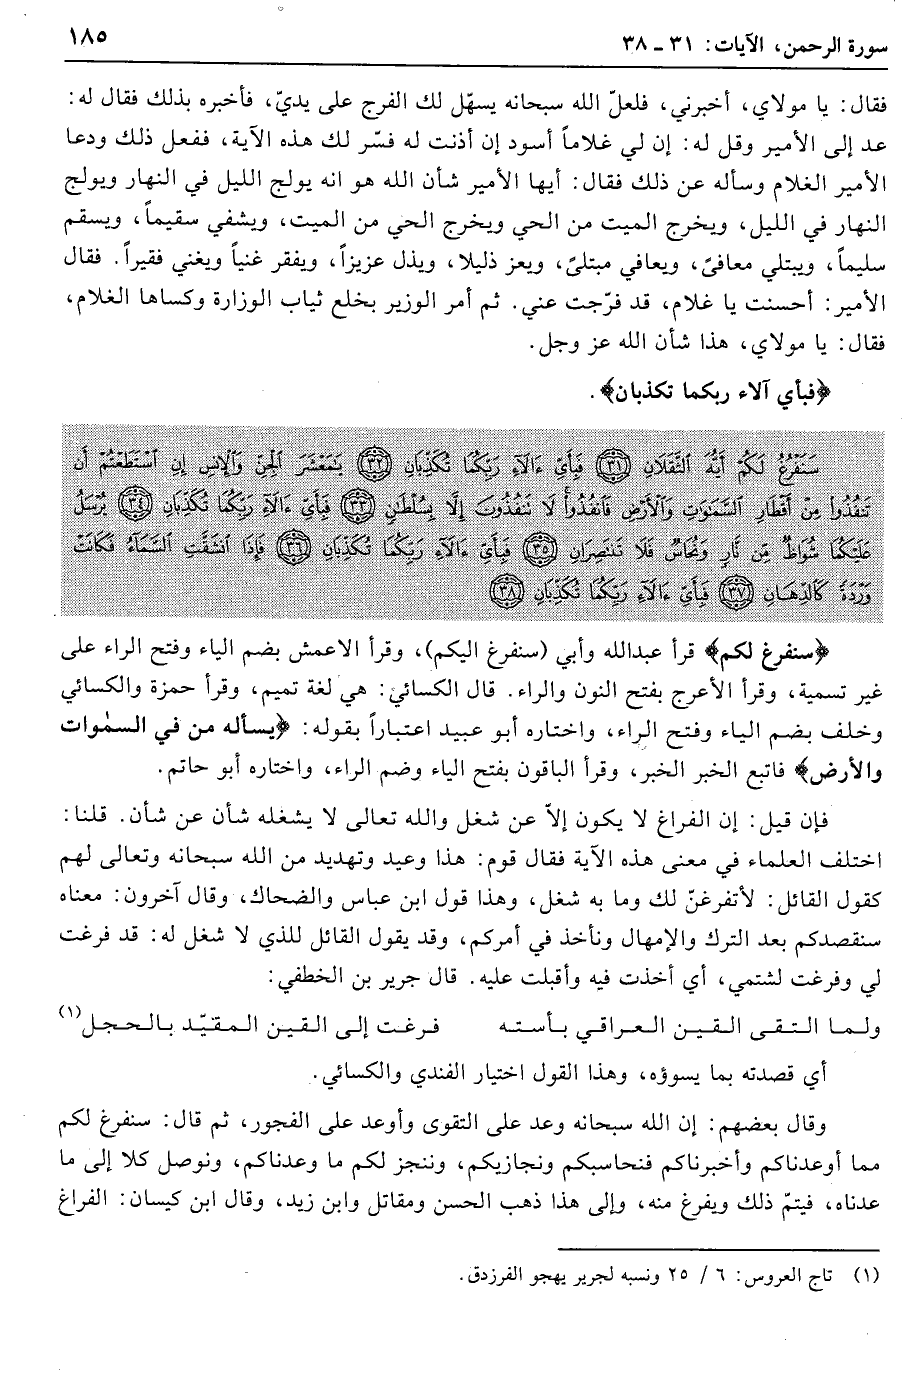 سورة الرحمن، الآيات: ٣١ ـ ٣٨
١٨٥
فقال: يا مولاي، أخبرني، فلعلّ الله سبحانه يسهّل لك الفرج على يديّ، فأخبره بذلك فقال له:
عد إلى الأمير وقل له: إن لي غلاماً أسود إن أذنت له فسّر لك هذه الآية، ففعل ذلك ودعا
الأمير الغلام وسأله عن ذلك فقال: أيها الأمير شأن الله هو انه يولج الليل في النهار ويولج
النهار في الليل، ويخرج الميت من الحي ويخرج الحي من الميت، ويشفي سقيماً، ويسقم
سليماً، ويبتلي معافىً، ويعافي مبتلىً، ويعز ذليلا، ويذل عزيزاً، ويفقر غنياً ويغني فقيراً. فقال
الأمير: أحسنت يا غلام، قد فرّجت عني. ثم أمر الوزير بخلع ثياب الوزارة وكساها الغلام،
فقال: يا مولاي، هذا شأن الله عز وجل.
﴿فبأي آلاء ربكما تكذبان﴾.
سَنَفْرُغُ لَكُمْ أَيُّهَ ٱلثَّقَلَانِ ﴿٣١﴾ فَبِأَيِّ ءَالَآءِ رَبِّكُمَا تُكَذِّبَانِ ﴿٣٢﴾ يَٰمَعْشَرَ ٱلْجِنِّ وَٱلْإِنسِ إِنِ ٱسْتَطَعْتُمْ أَن
تَنفُذُوا۟ مِنْ أَقْطَارِ ٱلسَّمَٰوَٰتِ وَٱلْأَرْضِ فَٱنفُذُوا۟ لَا تَنفُذُونَ إِلَّا بِسُلْطَٰنٍ ﴿٣٣﴾ فَبِأَيِّ ءَالَآءِ رَبِّكُمَا تُكَذِّبَانِ ﴿٣٤﴾ يُرْسَلُ
عَلَيْكُمَا شُوَاظٌ مِّن نَّارٍ وَنُحَاسٌ فَلَا تَنتَصِرَانِ ﴿٣٥﴾ فَبِأَيِّ ءَالَآءِ رَبِّكُمَا تُكَذِّبَانِ ﴿٣٦﴾ فَإِذَا ٱنشَقَّتِ ٱلسَّمَآءُ فَكَانَتْ
وَرْدَةً كَٱلدِّهَانِ ﴿٣٧﴾ فَبِأَيِّ ءَالَآءِ رَبِّكُمَا تُكَذِّبَانِ ﴿٣٨﴾
﴿سنفرغ لكم﴾ قرأ عبدالله وأبي (سنفرغ اليكم)، وقرأ الاعمش بضم الياء وفتح الراء على
غير تسمية، وقرأ الأعرج بفتح النون والراء. قال الكسائي: هي لغة تميم، وقرأ حمزة والكسائي
وخلف بضم الياء وفتح الراء، واختاره أبو عبيد اعتباراً بقوله: ﴿يسأله من في السمٰوات
والأرض﴾ فاتبع الخبر الخبر، وقرأ الباقون بفتح الياء وضم الراء، واختاره أبو حاتم.
فإن قيل: إن الفراغ لا يكون إلاّ عن شغل والله تعالى لا يشغله شأن عن شأن. قلنا:
اختلف العلماء في معنى هذه الآية فقال قوم: هذا وعيد وتهديد من الله سبحانه وتعالى لهم
كقول القائل: لأتفرغنّ لك وما به شغل، وهذا قول ابن عباس والضحاك، وقال آخرون: معناه
سنقصدكم بعد الترك والإمهال ونأخذ في أمركم، وقد يقول القائل للذي لا شغل له: قد فرغت
لي وفرغت لشتمي، أي أخذت فيه وأقبلت عليه. قال جرير بن الخطفي:
ولما التقى القين العراقي بأسته فرغت إلى القين المقيّد بالحجل(١)
أي قصدته بما يسوؤه، وهذا القول اختيار الفندي والكسائي.
وقال بعضهم: إن الله سبحانه وعد على التقوى وأوعد على الفجور، ثم قال: سنفرغ لكم
مما أوعدناكم وأخبرناكم فنحاسبكم ونجازيكم، وننجز لكم ما وعدناكم، ونوصل كلا إلى ما
عدناه، فيتمّ ذلك ويفرغ منه، وإلى هذا ذهب الحسن ومقاتل وابن زيد، وقال ابن كيسان: الفراغ
(١) تاج العروس: ٦ / ٢٥ ونسبه لجرير يهجو الفرزدق.